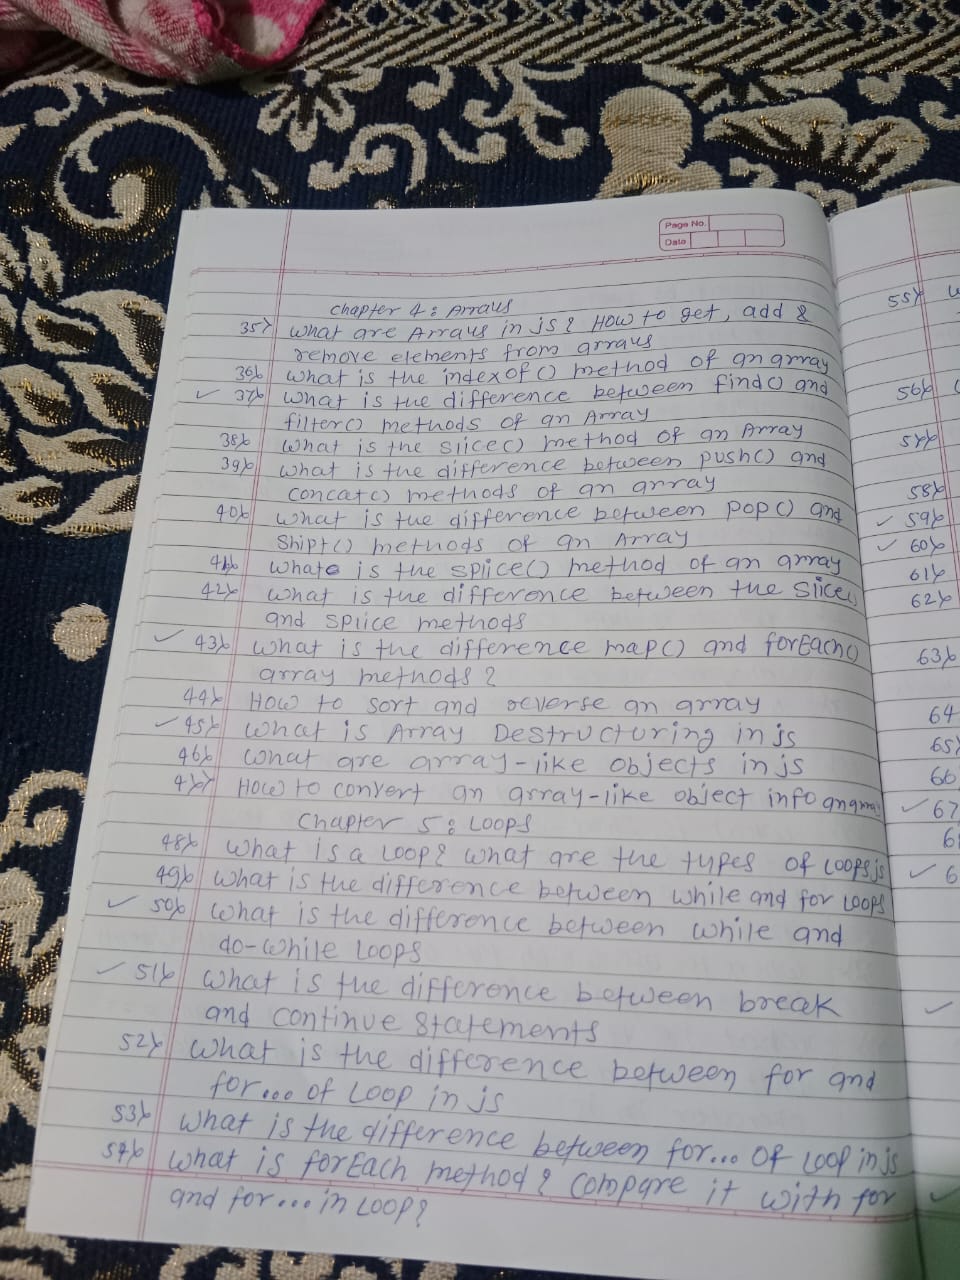 Page No.
Date
Chapter 4: Arrays
35) What are Arrays in js? How to get, add &
remove elements from arrays
36) What is the indexof() method of an array
✓ 37) What is the difference between find() and
filter() methods of an Array
38) What is the slice() method of an Array
39) What is the difference between push() and
concat() methods of an array
40) What is the difference between pop() and
Shipt() methods of an Array
41) What is the splice() method of an array
42) What is the difference between the slice()
and splice methods
✓ 43) What is the difference map() and forEach()
array methods?
44) How to sort and reverse an array
✓ 45) What is Array Destructuring in js
46) What are array-like objects in js
47) How to convert an array-like object info an array
Chapter 5: Loops
48) What is a Loop? What are the types of Loops js
49) What is the difference between while and for Loops
✓ 50) What is the difference between while and
do-while Loops
✓ 51) What is the difference between break
and continue statements
52) What is the difference between for and
for... of Loop in js
53) What is the difference between for... of Loop in js
54) What is forEach method? Compare it with for
and for... in Loop?
55)
56)
58)
✓ 59)
✓ 60)
61)
62)
63)
64
65)
66
✓ 67
✓ 6